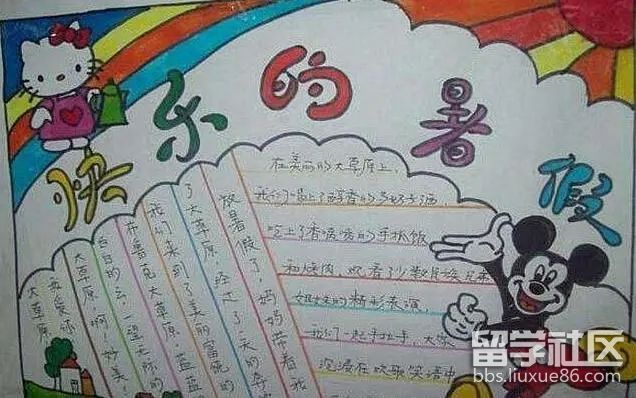 快乐的暑假
放暑假了,妈妈带着我
了大草原 经过了一天的奔
我们来到了美丽富饶的
大草原 蓝蓝
白白的云,一望无际的
大草原,啊!美
我爱你
大草原
在美丽的大草原上,
我们喝上了醇香的马奶子酒,
吃上了香喷喷的手抓饭
和烤肉,观看了少数民族兄弟
姐妹的精彩表演,
我们一起手拉手,大家
沉浸在欢歌笑语中
留学社区
bbs.liuxue86.com